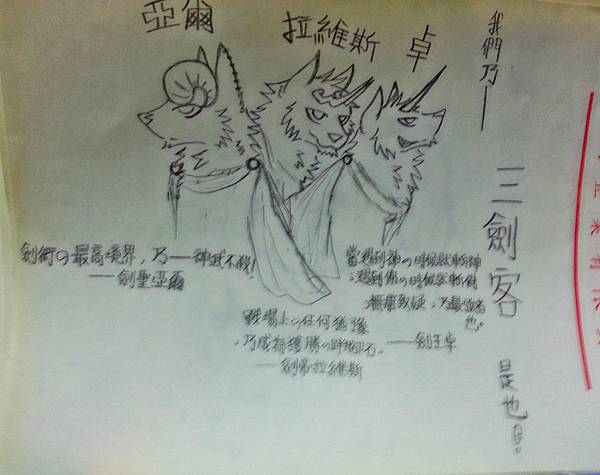 我們乃——
三劍客
是也。
亞爾
拉維斯
卓
劍術の最高境界，乃——神武不殺！
——劍聖亞爾
當遇到神の時候就斬神
，遇到佛の時候就斬佛
，無庸致疑，乃最強者
也。
——劍王卓
戰場上の任何猶豫
，乃成為獲勝の絆腳石。
——劍帝拉維斯